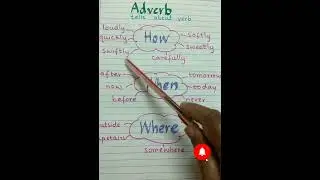 Adverb
tells about verb
loudly
quickly
swiftly
How
softly
sweetly
carefully
after
now
before
When
tomorrow
today
never
outside
upstairs
Where
somewhere